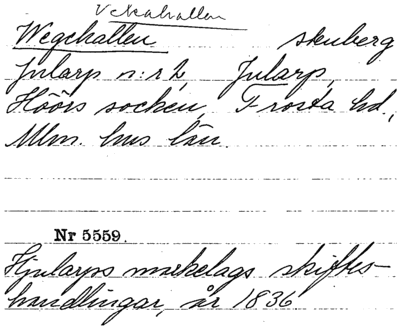 Vekahallen
Wegehallen. skuberg
Jularp n:r 2, Jularp,
Höörs socken, Frosta hd.,
Mlm. hus län.
Nr 5559.
Hjularps markelags skiftes-
handlingar, år 1836